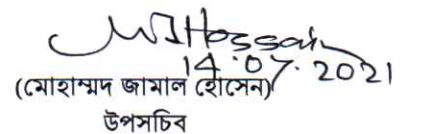 MJHossain
14.07.2021
(মোহাম্মদ জামাল হোসেন)
উপসচিব